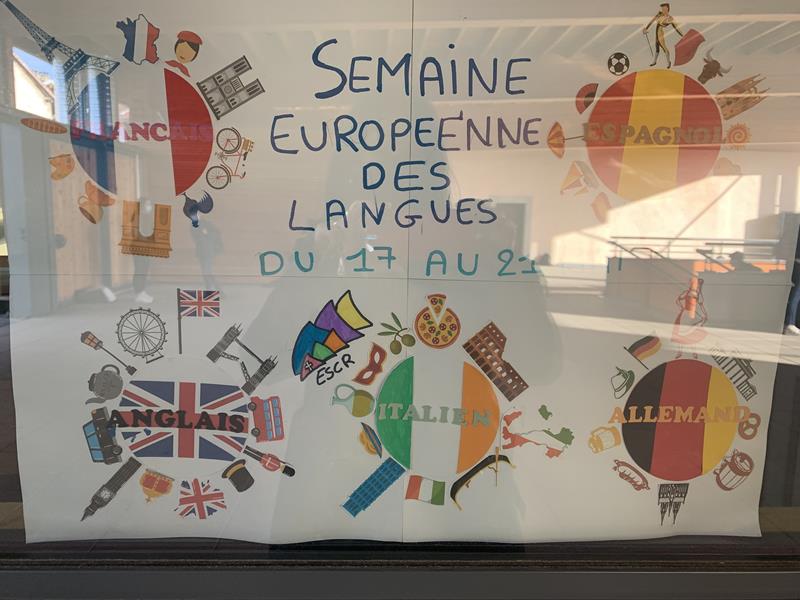 SEMAINE
EUROPEENNE
DES
LANGUES
DU 17 AU 21
FRANCAIS
ESPAGNOL
ESCR
ANGLAIS
ITALIEN
ALLEMAND